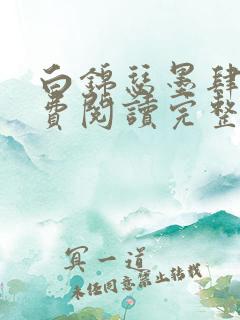 白錦瑟墨肆
費閱讀完整
冥一道
未經同意禁止轉載